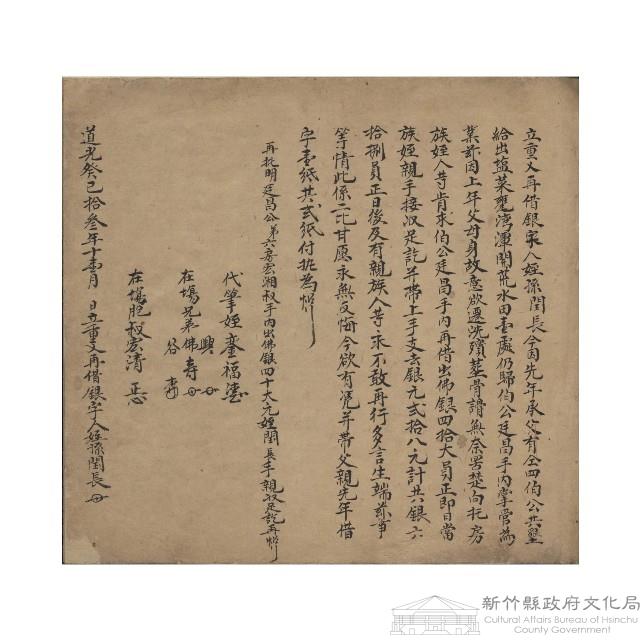 立重文再借銀字人姪孫閏長今因先年承父有全四伯公共墾
給出鹽菜甕湾渾開荒水田壹處仍歸伯公廷昌手內掌管為
業茲因上年父母身故意欲遷洗殯塟骨讀無奈苦楚向托房
族姪人等肯求伯公廷昌手內再借出佛銀四拾大員正即日當
族姪親手接収足訖并帶上手支去銀元弍拾八元計共銀六
拾捌員正日後及有親族人等永不敢再行多言生端茲事
等情此係二比甘愿永無反悔今欲有凭并帶父親先年借
字壹紙共弍紙付執為炤
再批明廷昌公第六房宏湘叔手內出佛銀四十大元姪閏長手親収足訖再炤
代筆姪 福
在塲兄弟 興 佛壽 谷
在塲胞叔宏清
道光癸已拾叁年十壹月 日立重支再借銀字人姪孫閏長
新竹縣政府文化局
Cultural Affairs Bureau of Hsinchu
County Government